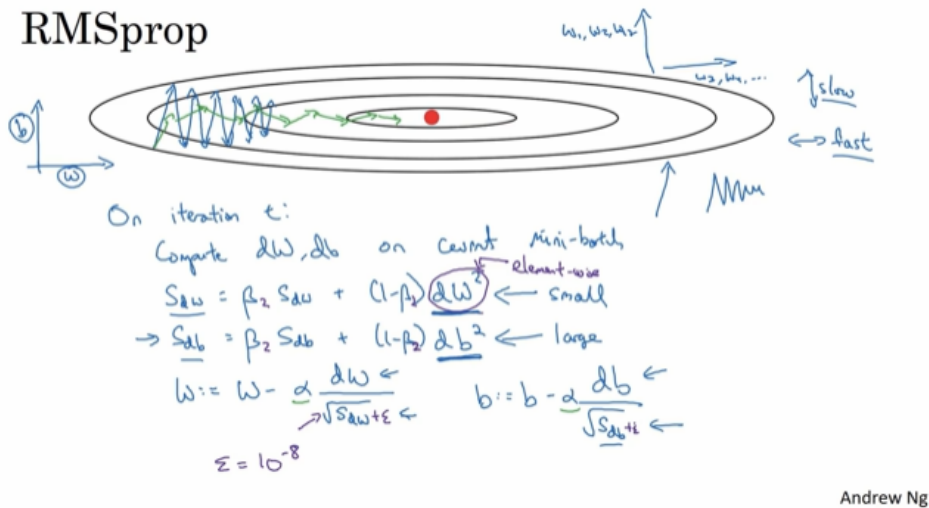 RMSprop
w₁, w₂, w₂
w₃, w₄, ...
slow
fast
b
w
On iteration t:
Compute dW, db on current mini-batch
element-wise
S_dw = β₂ S_dw + (1-β₂) dW² ← small
→ S_db = β₂ S_db + (1-β₂) db² ← large
w := w - α dw / √S_dw + ε ← b := b - α db / √S_db + ε ←
ε = 10⁻⁸
Andrew Ng